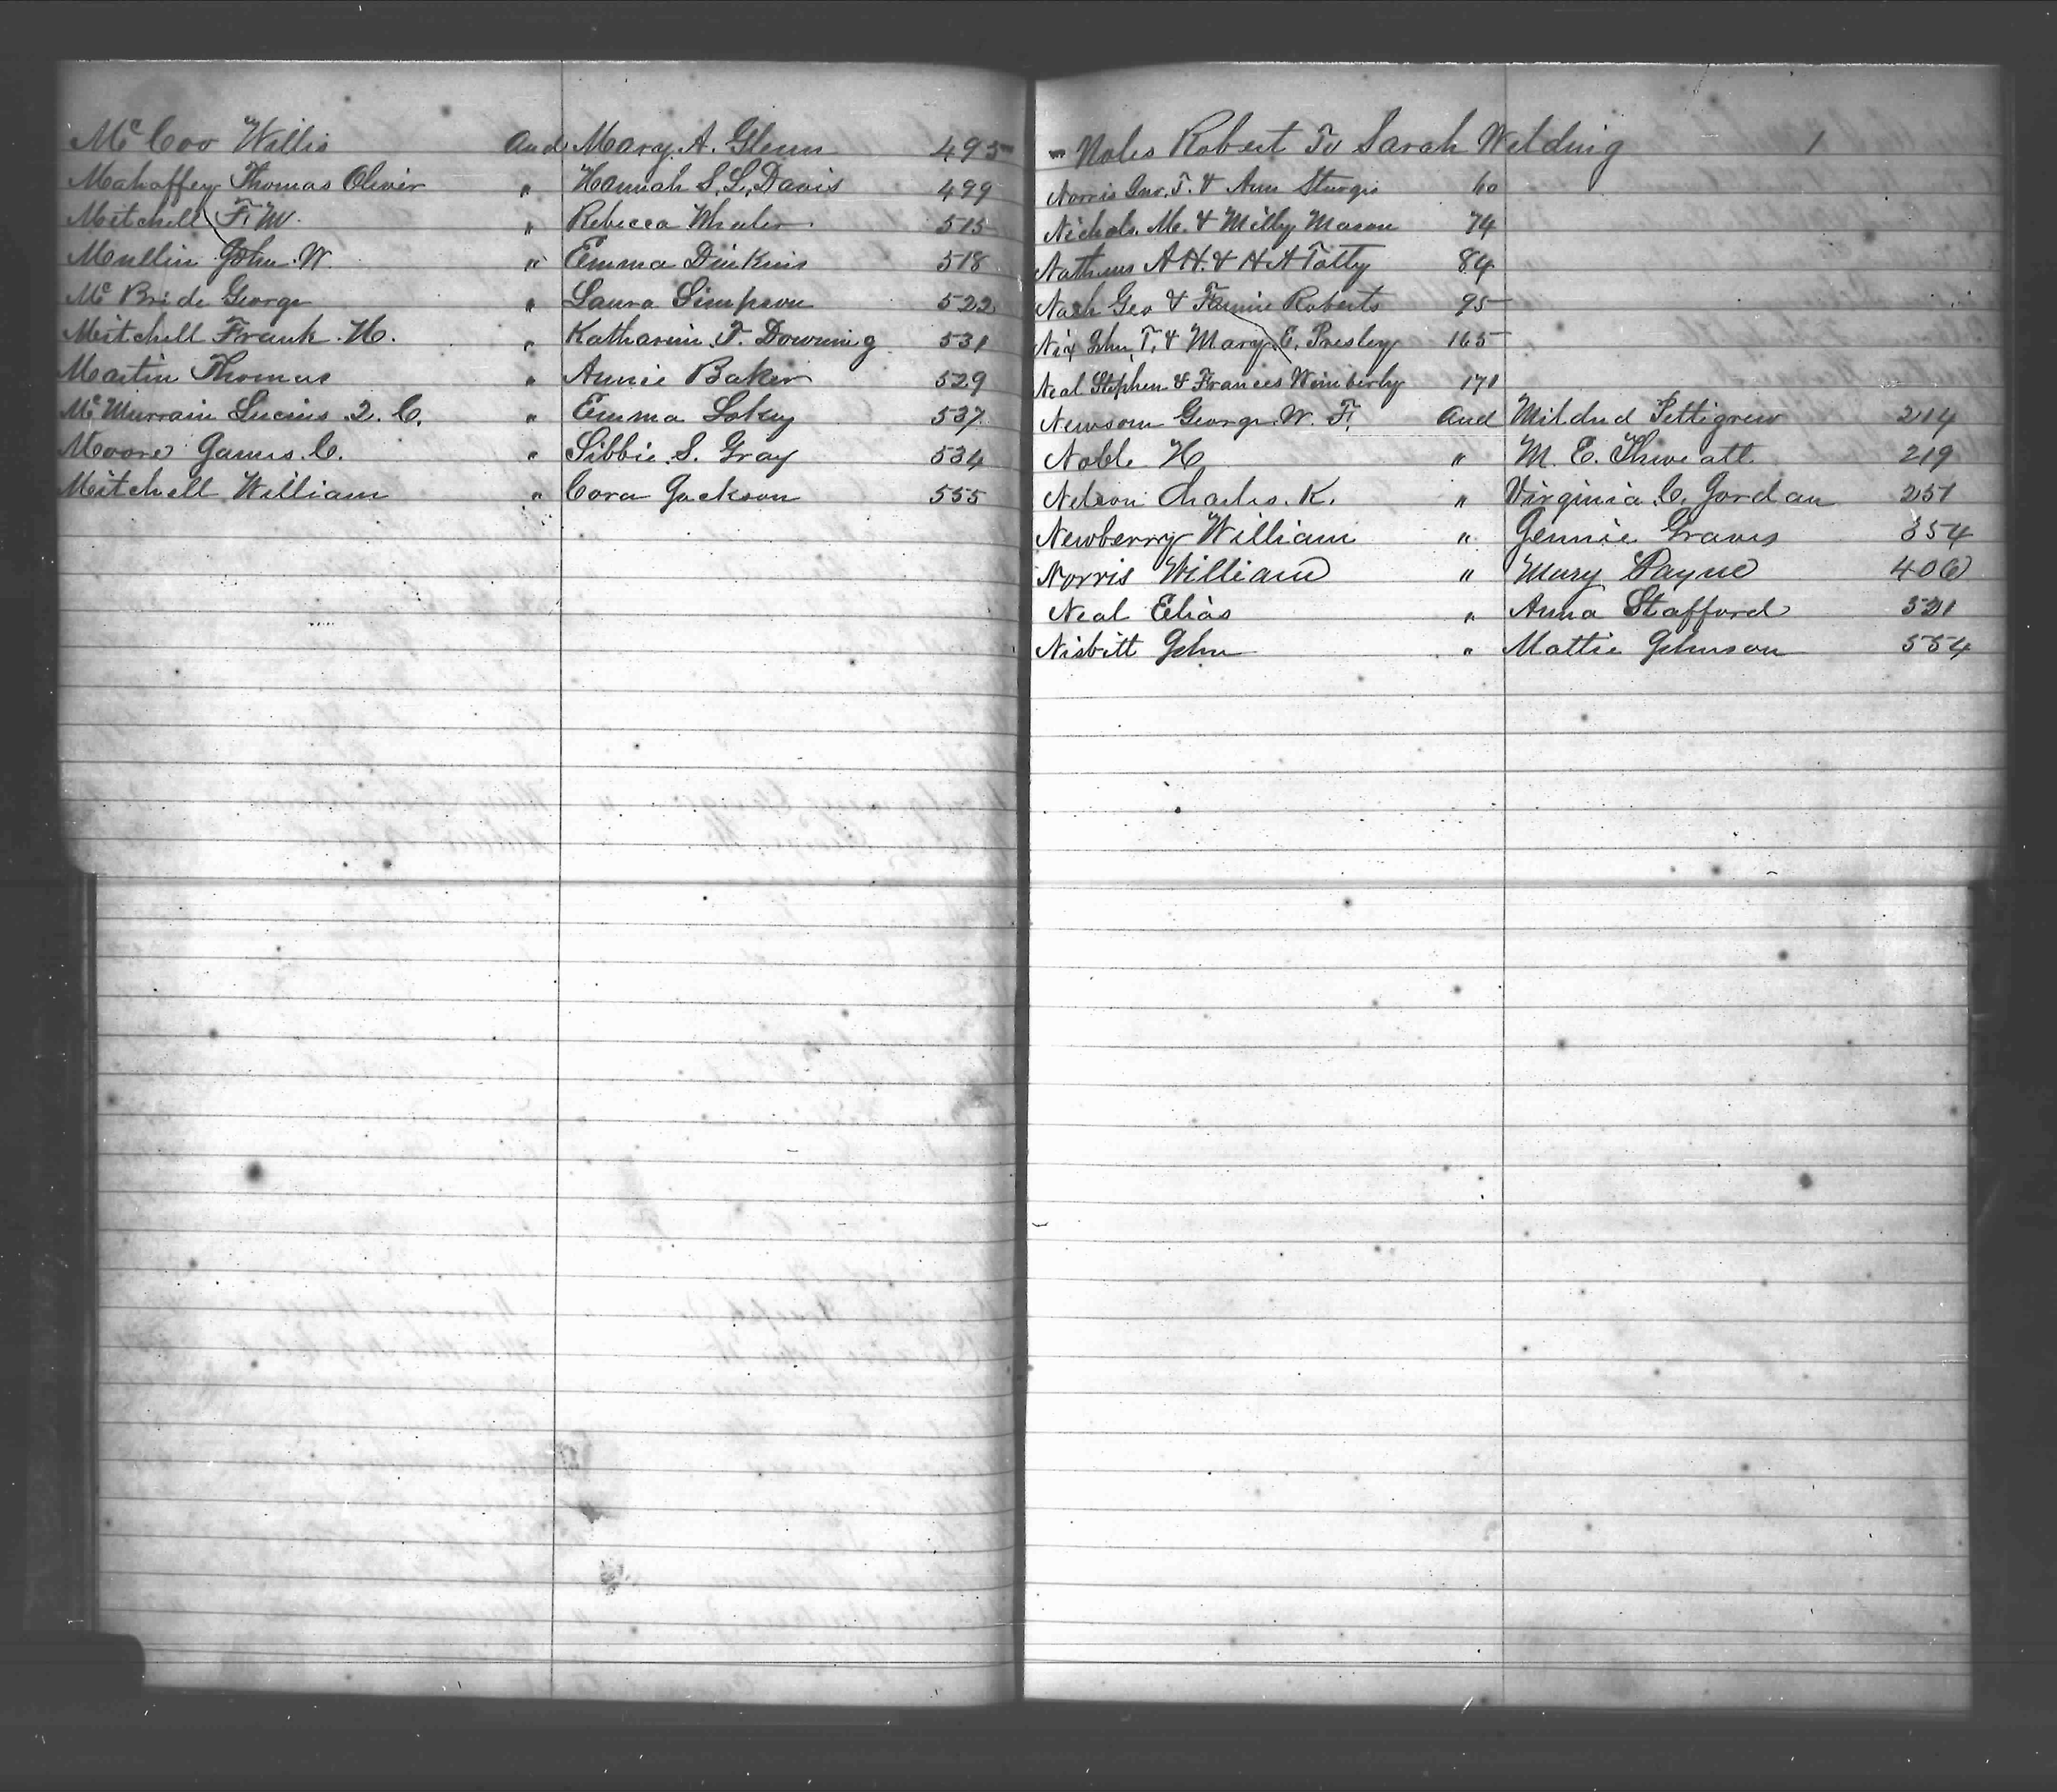 McCoo Willis And Mary. A. Glenn 495
Mahaffey Thomas Oliver " Hannah S. L. Davis 499
Mitchell F. M. " Rebecca Whaler 515
Mullin John W. " Emma Dinkins 518
McBride George " Laura Simpson 522
Mitchell Frank. H. " Katharine F. Downing 531
Martin Thomas " Annie Baker 529
McMurrain Lucius Q. C. " Emma Lokey 537
Moore James. C. " Sibbie. S. Gray 534
Mitchell William " Cora Jackson 555
Noles Robert To Sarah Wilding 1
Norris Jno. T. & Ann Sturgis 60
Nichols. M. & Milly Mason 74
Nathans A H. & H A Tatty 84
Nash Geo & Fannie Roberts 95
Nix John. T. & Mary E. Presley 165
Neal Stephen & Frances Wimberly 171
Newsom George. W. F. And Mildred Pettigrew 214
Noble H " M. E. Thweatt 219
Nelson Charles. K. " Virginia. C. Jordan 251
Newberry William " Jennie Graves 354
Norris William " Mary Payne 406
Neal Elias " Anna Stafford 521
Nisbitt John " Mattie Johnson 554